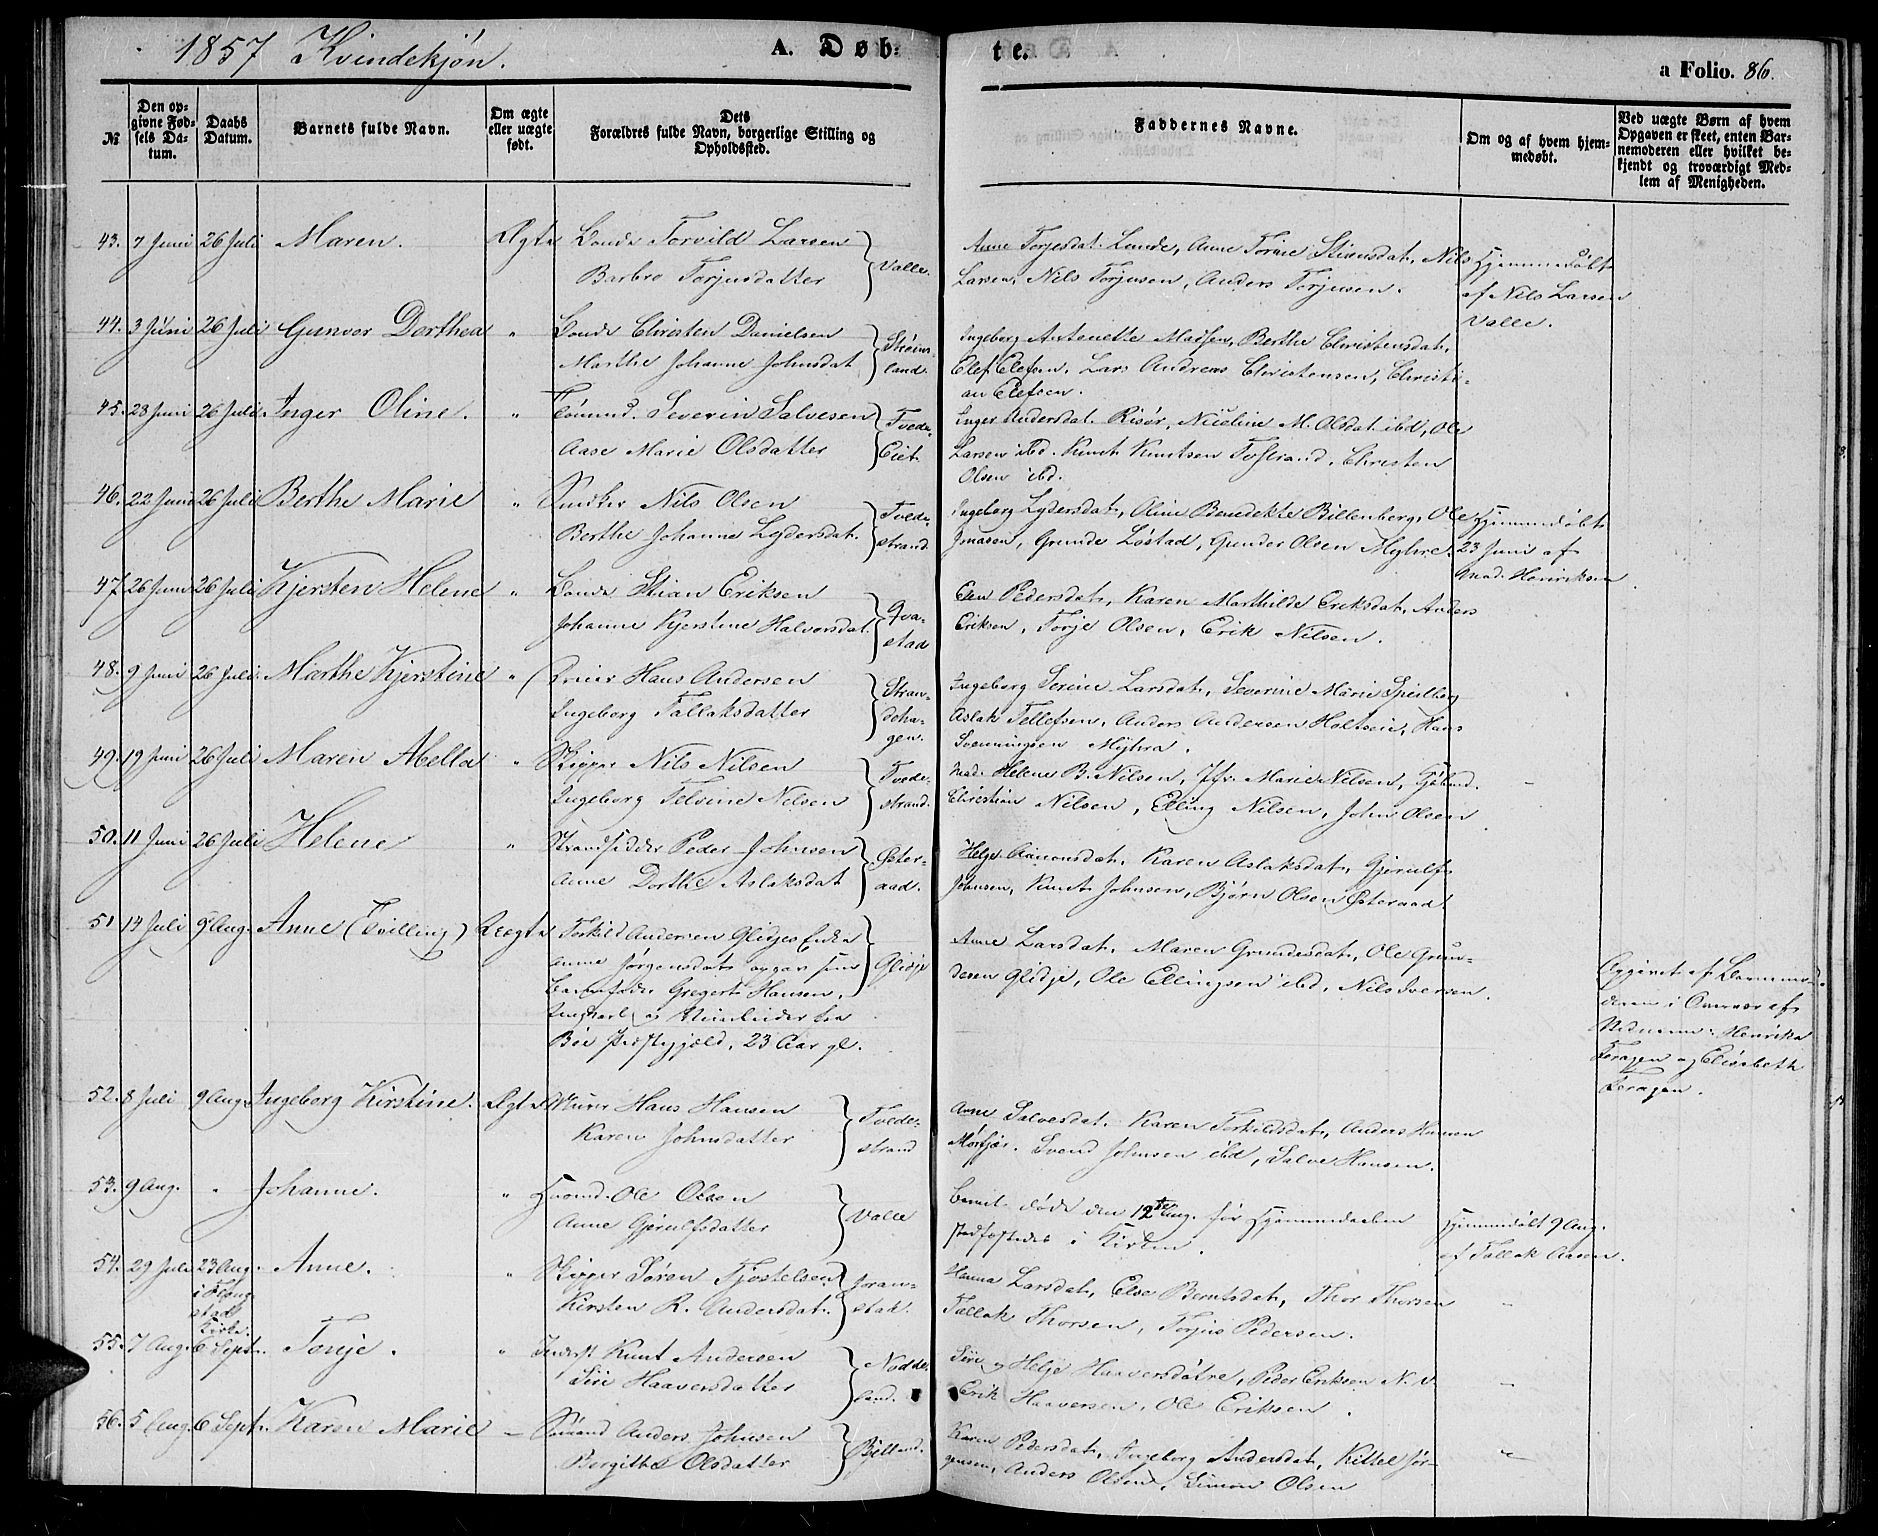 1857 Kvindekjøn.
A. Døb:
te.
a Folio. 86.
№
Den op-
givne Fød-
sels Da-
tum.
Daabs
Datum.
Barnets fulde Navn.
Om ægte
eller uægte
født.
Dets
Forældres fulde Navn, borgerlige Stilling og
Opholdssted.
Faddernes Navne.
Om og af hvem hjem-
medøbt.
Ved uægte Børn af hvem
Opgaven er skeet, enten Bar-
nemoderen eller hvilket be-
kjendt og troværdigt Med-
lem af Menigheden.
43. 7 Juni 26 Juli Maren. Ægte Bonde Torvild Larsen
Barbro Torjusdatter
Valle.
Anne Torjesdat. Lunde, Anne Torine Stiansdat, Nils
Larsen, Nils Torjusen, Anders Torjusen.
Hjemmedøbt
af Nils Larsen
Valle.
44. 3 Juni 26 Juli Gunvor Dorthea " Bonde Christen Danielsen
Marthe Johanne Johnsdat
Strøms-
land.
Ingeborg Antonette Madsen, Berthe Christensdat,
Elef Elefsen, Lars Andreas Christensen, Christi-
an Elefsen.
45. 28 Juni 26 Juli. Inger Oline. " Sömand. Severin Salvesen
Aase Marie Olsdatter
Tvede-
Eiet.
Inger Andersdat. Risør, Nicoline M. Olsdat ibd, Ole
Larsen ibd. Knut Knutsen Tostrand, Christen
Olsen ibd.
46. 22 Juni 26 Juli Berthe Marie " Snedker Nils Olsen
Berthe Johanne Lydersdat.
Tvede-
strand.
Ingeborg Lydersdat, Oline Benedikte Billenberg, Ole
Jonasen, Grunde Løstad, Gunder Olsen Myhre.
Hjemmedøbt
23 Juni af
Mad. Henriksen
47. 26 Juni 26 Juli Kjersten Helene " Bonde Stian Eriksen
Johanne Kjerstine Halvorsdat.
Qva-
stad
Elen Pedersdat, Karen Marthilde Eriksdat, Anders
Eriksen, Torje Olsen, Erik Nilsen.
48. 9 Juni 26 Juli. Marthe Kjerstine " Hans Andersen
Ingeborg Tallaksdatter
Stran-
deha-
gen.
Ingeborg Serine Larsdat, Severine Marie Speilberg
Aslak Tellefsen, Anders Andersen Holteeie, Hans
Svenningsen Myhra.
49. 19 Juni 26 Juli Maren Abella " Skipper Nils Nilsen
Ingeborg Telvine Nilsen
Tvede-
strand.
Mad. Helene B. Nilsen, Jfr. Marie Nilsen,
Christian Nilsen, Elling Nilsen, John Olsen
50. 11 Juni 26 Juli Helene " Strandsidder Peder Johnsen
Anne Dorthe Aslaksdat
Øster-
aad.
Helje Aanonsdat, Karen Aslaksdat, Gjerulf
Johnsen, Knut Johnsen, Bjørn Olsen Østeraad
51 14 Juli 9 Aug. Anne (Tvilling) Uægte Torkild Andersen Glidjes Enke
Anne Jørgensdat opgav som
Barnefader Gregert Hansen,
Ungkarl
Bøe Præstegjæld, 23 Aar gl.
Glidje
Anne Larsdat, Maren Grundesdat, Ole Grun-
desen Glidje, Ole Ellingsen ibd, Nils Iversen.
Opgivet af Barnemo-
deren i Overvær af
Madame: Henrika
Feragen og Elisabeth
Feragen.
52. 8 Juli 9 Aug. Ingeborg Kirstine. Ægte Murer Hans Hansen
Karen Johnsdatter
Tvede-
strand
Anne Salvesdat. Karen Torkildsdat, Anders Hansen
Mørfjær. Svend Johnsen ibd, Salve Hansen.
53. 9 Aug. " Johanne. " Huusmd. Ole Olsen
Anne Gjerulfsdatter
Valle
Barnet døde den 12te Aug. før Hjemmedaaben
stadfæstedes i Kirken.
Hjemmedøbt 9 Aug.
af Tallak Aasen.
54. 29 Juli 23 Aug.
i Flang-
stad
Kirke.
Anne. " Skipper Søren Fjostelsen
Kirsten R. Andersdat.
Gran-
stak.
Hanna Larsdat, Else Berntsdat, Thor Thorsen
Tallak Thorsen, Torjus Pedersen.
"
55. 7 Aug. 6 Sept. Tonje. " Inderst Knut Andersen
Siri Haaversdatter
Nodde-
land.
Siri og Helje Haaversdøtre, Peder Eriksen N.
Erik Haaversen, Ole Eriksen.
"
56. 5 Aug. 6 Sept. Karen Marie – Sömand Anders Johnsen
Bergithe Olsdatter
Bjelland.
Karen Pedersdat, Ingeborg Andersdat, Kittel Jør-
gensen, Anders Olsen, Simon Olsen
"